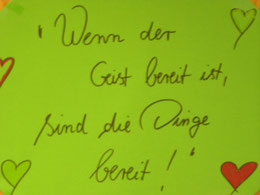 "Wenn der
Geist bereit ist,
sind die Dinge
bereit!"